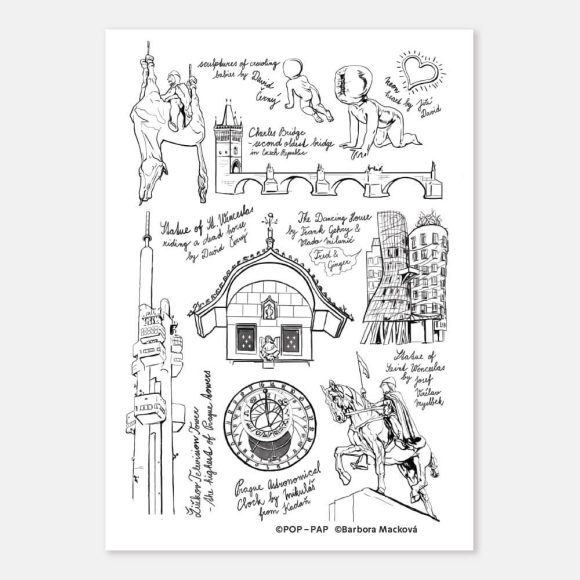 sculptures of crawling
babies by David
Černý
neon
heart by Jiří
David
Charles Bridge
- second oldest bridge
in Czech Republic
Statue of St. Wenceslas
riding a dead horse
by David Černý
The Dancing House
by Frank Gehry &
Vlado Milunić
Fred &
Ginger
Statue of
Saint Wenceslas
by Josef
Václav
Myslbek
Žižkov Television Tower
- the highest of Prague towers
Prague Astronomical
Clock by Mikuláš
from Kadaň
©POP-PAP ©Barbora Macková